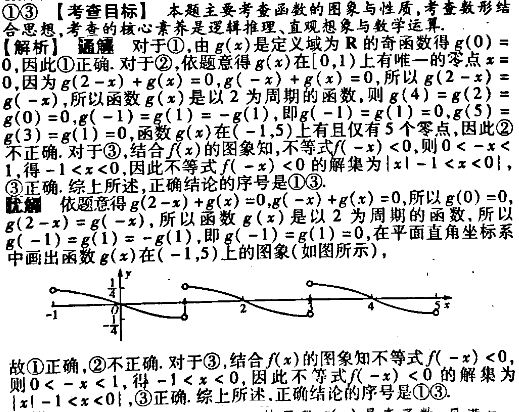 ①③ 【考查目标】 本题主要考查函数的图象与性质,考查数形结
合思想,考查的核心素养是逻辑推理、直观想象与数学运算.
【解析】 通解 对于①,由g(x)是定义域为R的奇函数得g(0)=
0,因此①正确.对于②,依题意得g(x)在[0,1)上有唯一的零点x=
0,因为g(2-x)+g(x)=0,g(-x)+g(x)=0,所以g(2-x)=
g(-x),所以函数g(x)是以2为周期的函数,则g(4)=g(2)=
g(0)=0,g(-1)=g(1)=-g(1),即g(-1)=g(1)=0,g(5)=
g(3)=g(1)=0,函数g(x)在(-1,5)上有且仅有5个零点,因此②
不正确.对于③,结合f(x)的图象知,不等式f(-x)<0,则0<-x<
1,得-1<x<0,因此不等式f(-x)<0的解集为{x|-1<x<0},
③正确.综上所述,正确结论的序号是①③.
优解 依题意得g(2-x)+g(x)=0,g(-x)+g(x)=0,所以g(0)=0,
g(2-x)=g(-x),所以函数g(x)是以2为周期的函数,所以
g(-1)=g(1)=-g(1),即g(-1)=g(1)=0,在平面直角坐标系
中画出函数g(x)在(-1,5)上的图象(如图所示),
y
1/4
-1 O 1 2 3 4 5 x
-1/4
故①正确,②不正确.对于③,结合f(x)的图象知不等式f(-x)<0,
则0<-x<1,得-1<x<0,因此不等式f(-x)<0的解集为
{x|-1<x<0},③正确.综上所述,正确结论的序号是①③.